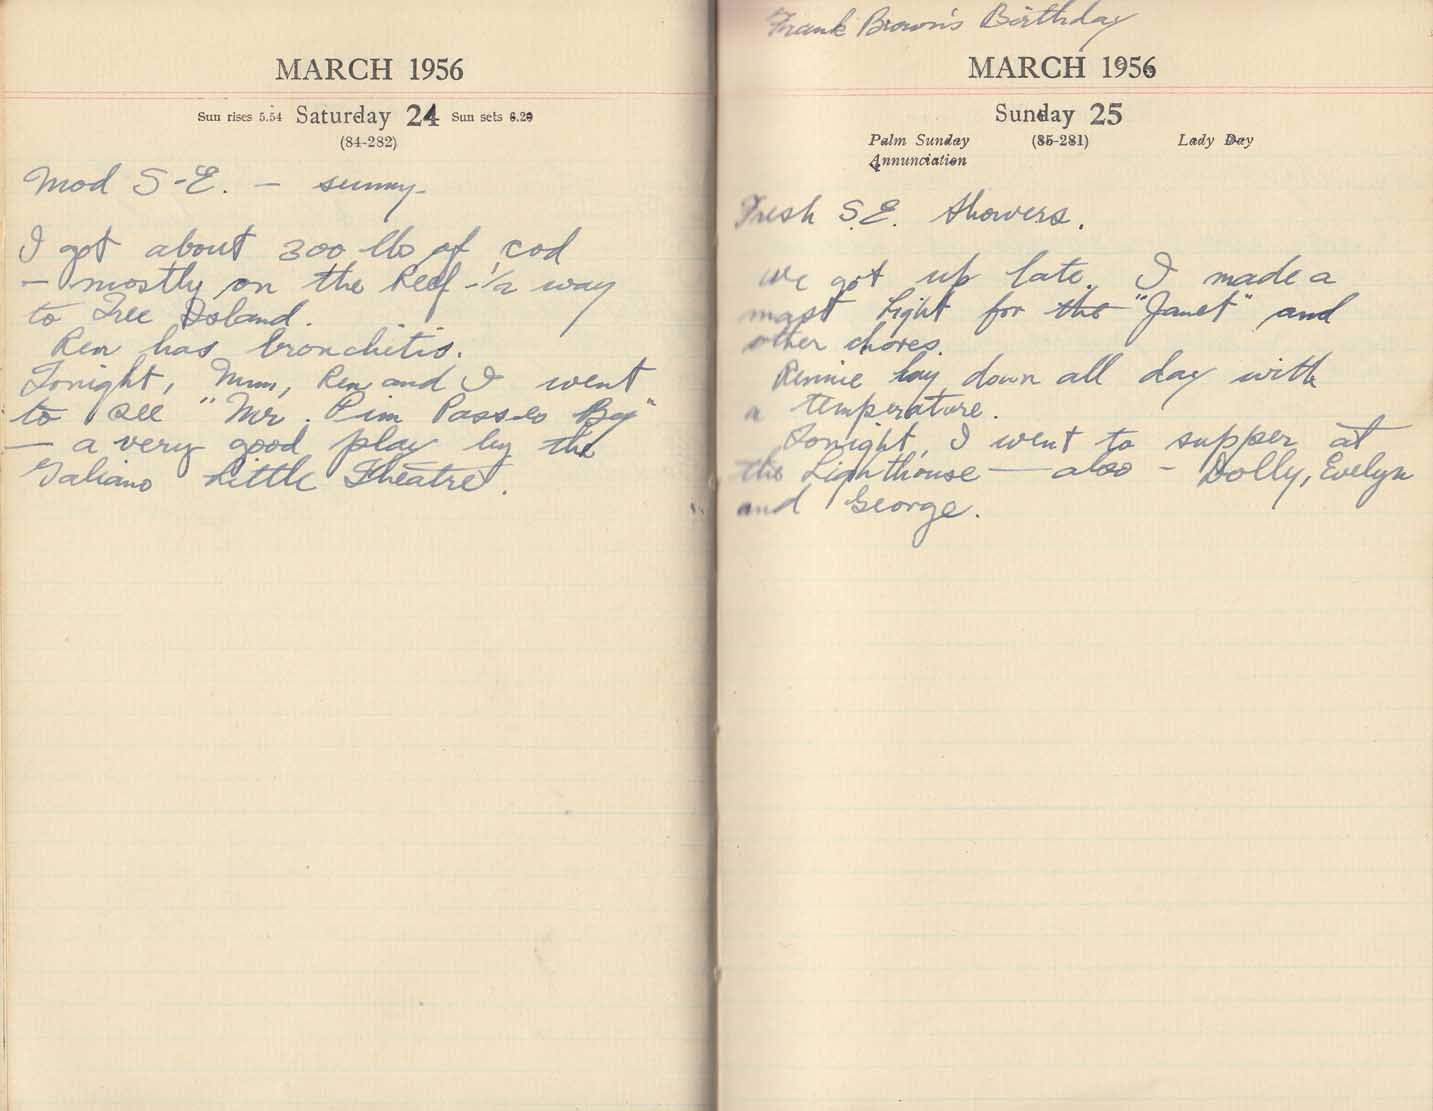 MARCH 1956
Sun rises 5.54 Saturday 24 Sun sets 6.20
(84-282)
Mod S-E. — sunny-
I got about 300 lbs of cod
— mostly on the Reef - 1/2 way
to Tree Island.
Ren has bronchitis.
Tonight, Mum, Ren and I went
to see "Mr. Pim Passes By"
— a very good play by the
Galiano Little Theatre.
Frank Brown's Birthday
MARCH 1956
Sunday 25
Palm Sunday (85-281) Lady Day
Annunciation
Fresh S.E. Showers.
We got up late. I made a
mast light for the "Janet" and
other chores.
Rennie lay down all day with
a temperature.
Tonight, I went to supper at
the Lighthouse — also - Dolly, Evelyn
and George.